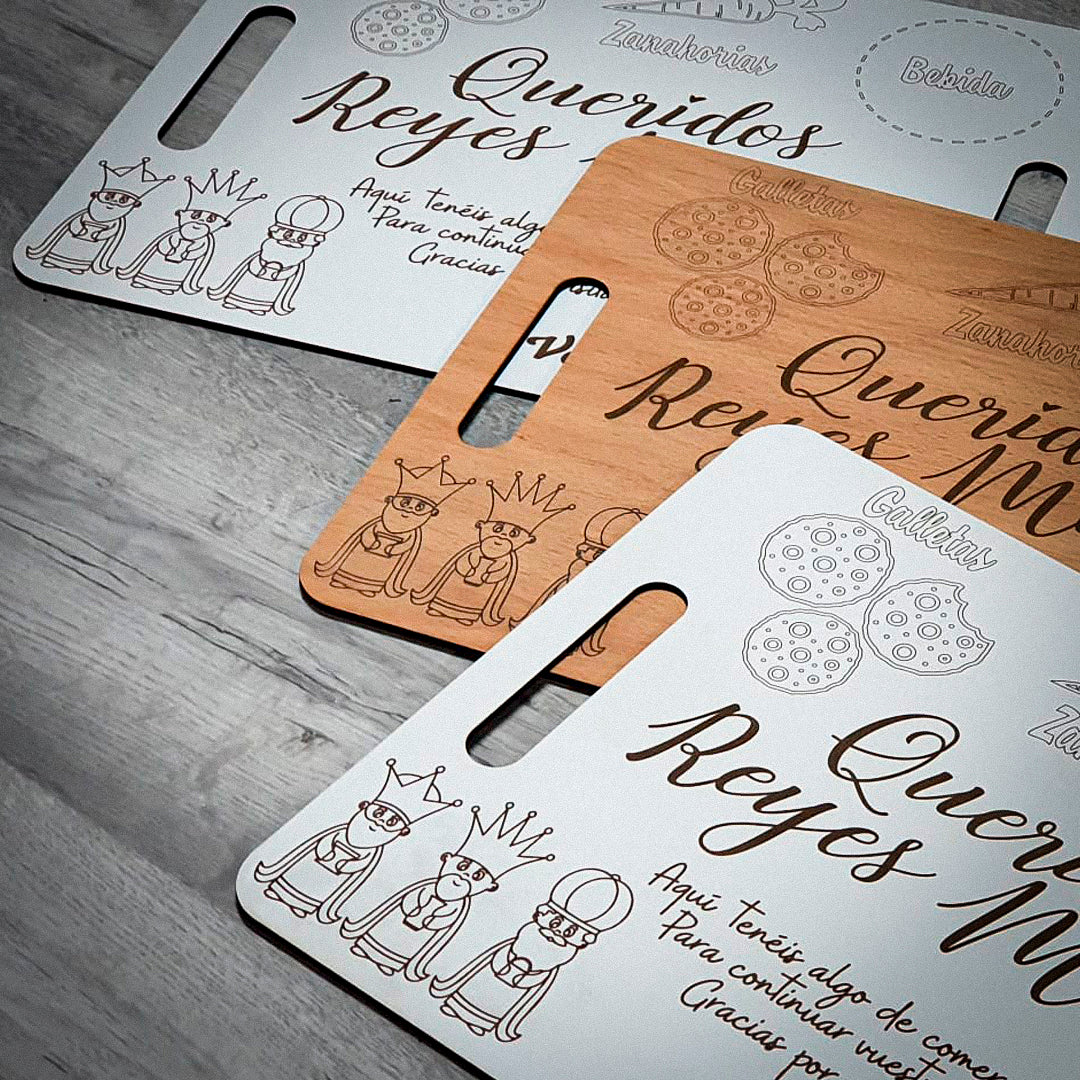 Zanahorias
Bebida
Queridos
Reyes
Aquí tenéis algo
Para continua
Gracias
Galletas
Zanahorias
Querid
Reyes M
Galletas
Za
Queri
Reyes M
Aquí tenéis algo de comer
Para continuar vuest
Gracias por